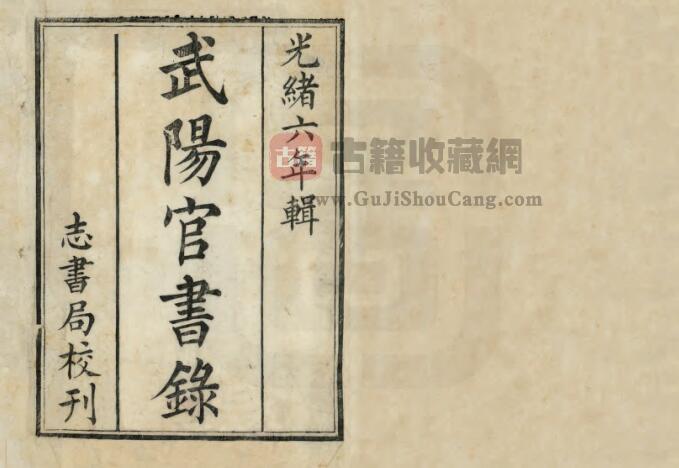 光緒六年輯
武陽官書錄
志書局校刊
古籍
古籍收藏網
www.GuJiShouCang.com